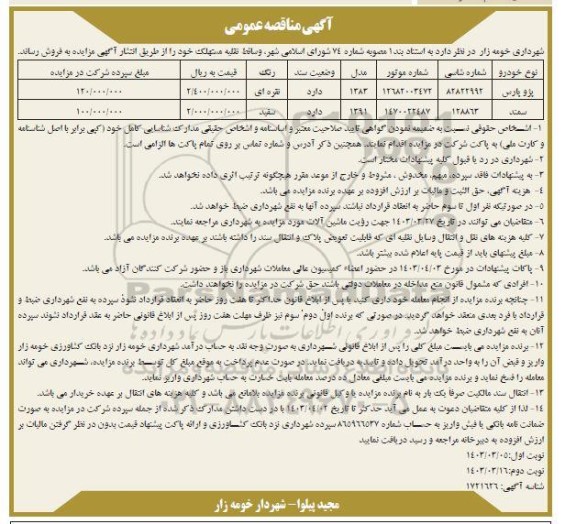 آگهی مناقصه عمومی
شهرداری خومه زار در نظر دارد به استناد بند۱ مصوبه شماره ۷۴ شورای اسلامی شهر، وسائط نقلیه مستهلک خود را از طریق انتشار آگهی مزایده به فروش رساند.
نوع خودرو شماره شاسی شماره موتور مدل وضعیت سند رنگ قیمت به ریال مبلغ سپرده شرکت در مزایده
پژو پارس ۸۲۸۲۲۹۹۲ ۱۲۶۸۲۰۰۳۴۷۲ ۱۳۸۳ دارد نقره ای ۲/۴۰۰/۰۰۰/۰۰۰ ۱۲۰/۰۰۰/۰۰۰
سمند ۱۲۸۸۶۳ ۱۴۷۰۰۲۲۴۸۷ ۱۳۹۱ دارد سفید ۲/۰۰۰/۰۰۰/۰۰۰ ۱۰۰/۰۰۰/۰۰۰
۱- اشخاص حقوقی نسبت به ضمیمه نمودن گواهی تایید صلاحیت معتبر و اساسنامه و اشخاص حقیقی مدارک شناسایی کامل خود (کپی برابر با اصل شناسنامه
و کارت ملی) به پاکت شرکت در مزایده اقدام نمایند. همچنین ذکر آدرس و شماره تماس بر روی تمام پاکت ها الزامی است.
۲- شهرداری در رد یا قبول کلیه پیشنهادات مختار است.
۳- به پیشنهادات فاقد سپرده، مبهم، مخدوش ، مشروط و خارج از موعد مقرر هیچگونه ترتیب اثری داده نخواهد شد.
۴- هزینه آگهی، حق الثبت و مالیات بر ارزش افزوده بر عهده برنده مزایده می باشد.
۵- در صورتیکه نفر اول تا سوم حاضر به انعقاد قرارداد نباشند سپرده آنها به نفع شهرداری ضبط خواهد شد.
۶- متقاضیان می توانند در تاریخ ۱۴۰۳/۰۳/۲۷ جهت رؤیت ماشین آلات مورد مزایده به شهرداری مراجعه نمایند.
۷- کلیه هزینه های نقل و انتقال وسایل نقلیه ای که قابلیت تعویض پلاک و انتقال سند را داشته باشند بر عهده برنده مزایده می باشد.
۸- مبلغ پیشنهادی باید از قیمت پایه اعلام شده بیشتر باشد.
۹- پاکات پیشنهادات در مورخ ۱۴۰۳/۰۴/۰۳ در حضور اعضاء کمیسیون عالی معاملات شهرداری باز و حضور شرکت کنندگان آزاد می باشد.
۱۰- افرادی که مشمول قانون منع مداخله در معاملات دولتی باشند حق شرکت در مزایده را نخواهند داشت.
۱۱- چنانچه برنده مزایده از انجام معامله خودداری کنید یا پس از ابلاغ قانون حداکثر تا هفت روز حاضر به انعقاد قرارداد نشود سپرده به نفع شهرداری ضبط و
قرارداد با فرد بعدی منعقد خواهد گردید. در صورتی که برنده اول دوم سوم نیز ظرف مهلت هفت روز پس از ابلاغ قانونی حاضر به عقد قرارداد نشوند سپرده
آنان به نفع شهرداری ضبط خواهد شد.
۱۲- برنده مزایده می بایست مبلغ کلی را پس از ابلاغ قانونی شهرداری به صورت وجه نقد به حساب درآمد شهرداری خومه زار نزد بانک کشاورزی خومه زار
واریز و قبض آن را به واحد درآمد تحویل داده و تاییدیه دریافت نماید. در صورت عدم پرداخت به موقع مبلغ کل توسط برنده مزایده، شهرداری می تواند
معامله را فسخ نماید و برنده مزایده می بایست مبلغی معادل ده درصد معامله بابت خسارت به حساب شهرداری واریز نماید.
۱۳- انتقال سند مالکیت صرفا یک بار به نام برنده مزایده یا وکیل قانونی برنده مزایده بلامانع می باشد و کلیه هزینه های انتقال بر عهده خریدار می باشد.
۱۴- لذا از کلیه متقاضیان دعوت به عمل می آید حداکثر تا تاریخ ۱۴۰۳/۰۴/۰۲ با در دست داشتن مدارک ذکر شده از جمله سپرده شرکت در مزایده به صورت
ضمانت نامه بانکی یا فیش واریز به حساب شماره ۸۶۵۹۶۶۵۳۷ سپرده شهرداری نزد بانک کشاورزی و ارائه پاکت پیشنهاد قیمت بدون در نظر گرفتن مالیات بر
ارزش افزوده به دبیرخانه مراجعه و رسید دریافت نمایید
نوبت اول:۱۴۰۳/۰۳/۰۵
نوبت دوم:۱۴۰۳/۰۳/۱۶
شناسه آگهی: ۱۷۲۱۶۲۶
مجید پیلوا– شهردار خومه زار